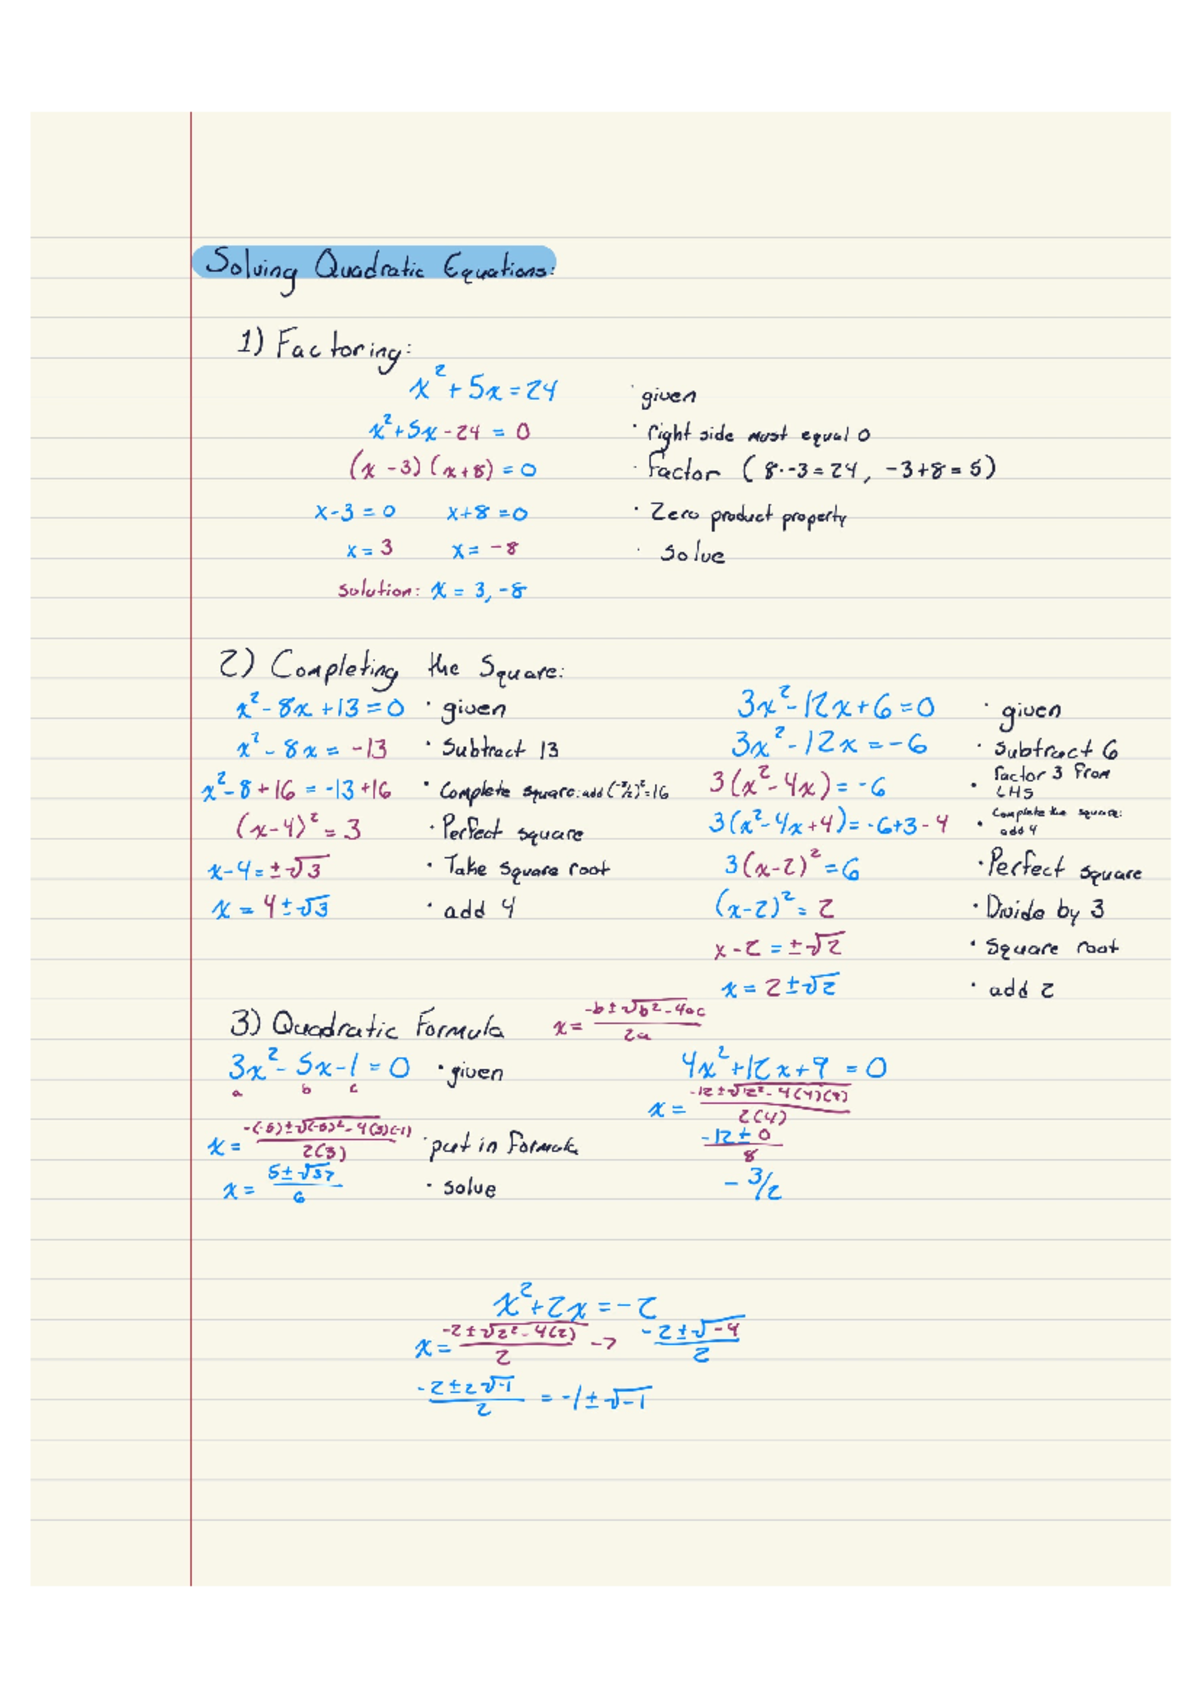 Solving Quadratic Equations:
1) Factoring:
x² + 5x = 24 · given
x² + 5x - 24 = 0 · right side must equal 0
(x - 3)(x + 8) = 0 · Factor (8·-3 = 24, -3 + 8 = 5)
x - 3 = 0 x + 8 = 0 · Zero product property
x = 3 x = -8 · Solve
Solution: x = 3, -8
2) Completing the Square:
x² - 8x + 13 = 0 · given
x² - 8x = -13 · Subtract 13
x² - 8 + 16 = -13 + 16 · Complete square: add (-8/2)² = 16
(x - 4)² = 3 · Perfect square
x - 4 = ±√3 · Take square root
x = 4 ± √3 · add 4
3x² - 12x + 6 = 0 · given
3x² - 12x = -6 · Subtract 6
3(x² - 4x) = -6 · factor 3 from LHS
3(x² - 4x + 4) = -6 + 3 - 4 · Complete the square: add 4
3(x - 2)² = 6 · Perfect square
(x - 2)² = 2 · Divide by 3
x - 2 = ±√2 · Square root
x = 2 ± √2 · add 2
3) Quadratic Formula x = (-b ± √b² - 4ac) / 2a
3x² - 5x - 1 = 0 · given
a b c
x = (-(-5) ± √(-5)² - 4(3)(-1)) / 2(3) · put in formula
x = (5 ± √37) / 6 · solve
4x² + 12x + 9 = 0
x = (-12 ± √12² - 4(4)(9)) / 2(4)
(-12 ± 0) / 8
- 3/2
x² + 2x = -2
x = (-2 ± √2² - 4(2)) / 2 → (-2 ± √-4) / 2
(-2 ± 2√-1) / 2 = -1 ± √-1